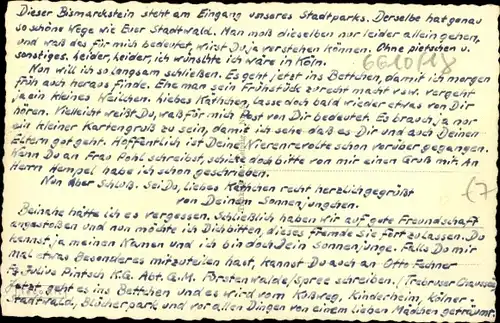 Dieser Bismarckstein steht am Eingang unseres Stadtparks. Derselbe hat genau
so schöne Wege wie Euer Stadtwald. Man muß dieselben nur leider allein gehen,
und was das für mich bedeutet, wirst Du ja verstehen können. Ohne pietschen u.
sonstiges. Leider, leider, ich wünschte ich wäre in Köln.
6610/18
Nun will ich so langsam schließen. Es geht jetzt ins Bettchen, damit ich morgen
früh auch heraus finde. Ehe man sein Frühstück zurecht macht usw. vergeht
ja ein kleines Weilchen. Liebes Käthchen, lasse doch bald wieder etwas von Dir
hören. Vielleicht weißt Du, was für mich Post von Dir bedeutet. Es brauch ja nur
ein kleiner Kartengruß zu sein, damit ich sehe daß es Dir und auch Deinen
Eltern gut geht. Hoffentlich ist Deine Nierenrevolte schon vorüber gegangen.
Wenn Du an Frau Pohl schreibst, schicke doch bitte von mir einen Gruß mit. An
Herrn Hempel habe ich schon geschrieben.
Nun aber Schluß. Sei Du, liebes Käthchen recht herzlich gegrüßt
von Deinem Sonnenjungchen.
Beinahe hätte ich es vergessen. Schließlich haben wir auf gute Freundschaft
angestoßen und nun möchte ich Dich bitten, dieses fremde Sie fort zu lassen. Du
kennst ja meinen Namen und ich bin doch Dein Sonnenjunge. Falls Du mir
mal etwas Besonderes mitzuteilen hast, kannst Du auch an Otto Fechner
Fa. Julius Pintsch K.G. Abt. G.M. Fürstenwalde/Spree schreiben. (Trebuser Chaussee)
Jetzt geht es ins Bettchen und es wird vom Kinderheim, Kölner
Stadtwald, Blücherpark und vor allen Dingen von einem lieben Mädchen geträumt.